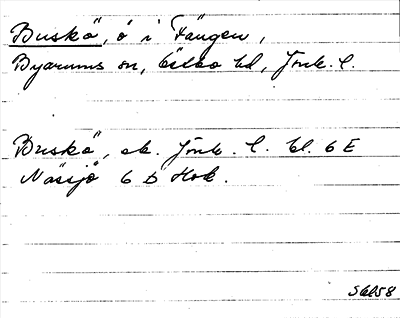 Buskö, ö i Fängen,
Byarums sn, Östbo hd, Jönk. l.
Buskö, ek. Jönk. l. bl. 6 E
Nässjö 6 D Hok.